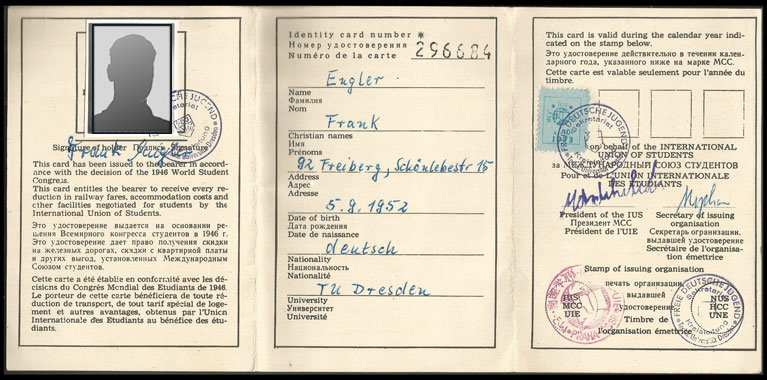 Frank Engler
Signature of holder Подпись Signature
This card has been issued to the bearer in accord-
ance with the decision of the 1946 World Student
Congress.
This card entitles the bearer to receive every re-
duction in railway fares, accommodation costs and
other facilities negotiated for students by the
International Union of Students.
Это удостоверение выдается на основании ре-
шения Всемирного конгресса студентов в 1946 г.
Это удостоверение дает право получения скидки
на железных дорогах, скидки с квартирной платы
и других выгод, установленных Международным
Союзом студентов.
Cette carte a été établie en conformité avec les dé-
cisions du Congrès Mondial des Etudiants de 1946.
Le porteur de cette carte bénéficiera de toute ré-
duction de transport, de tout tarif spécial de loge-
ment et autres avantages, obtenus par l'Union
Internationale des Etudiants au bénéfice des étu-
diants.
Identity card number *
Номер удостоверения
Numéro de la carte
296684
Engler
Name
Фамилия
Nom
Frank
Christian names
Имя
Prénoms
92 Freiberg, Schönlebestr 15
Address
Адрес
Adresse
5.9.1952
Date of birth
Дата рождения
Date de naissance
deutsch
Nationality
Национальность
Nationalité
TU Dresden
University
Университет
Université
This card is valid during the calendar year indi-
cated on the stamp below.
Это удостоверение действительно в течении кален-
дарного года, указанного ниже на марке МСС.
Cette carte est valable seulement pour l'année du
timbre.
FREIE DEUTSCHE JUGEND
Sekretariat
Kreisleitung
on behalf of the INTERNATIONAL
UNION OF STUDENTS
за МЕЖДУНАРОДНЫЙ СОЮЗ СТУДЕНТОВ
Pour et de l'UNION INTERNATIONALE
DES ETUDIANTS
President of the IUS
Президент МСС
Président de l'UIE
Secretary of issuing
organisation
Секретарь организации,
выдавшей удостоверение
Secrétaire de l'organisa-
tion émettrice
Stamp of issuing organisation
печать организации,
выдавшей
удостоверение
Timbre de
l'organisation émettrice
IUS
MCC
UIE
PRAHA
FREIE DEUTSCHE JUGEND
Sekretariat
NUS
НСС
UNE
Kreisleitung